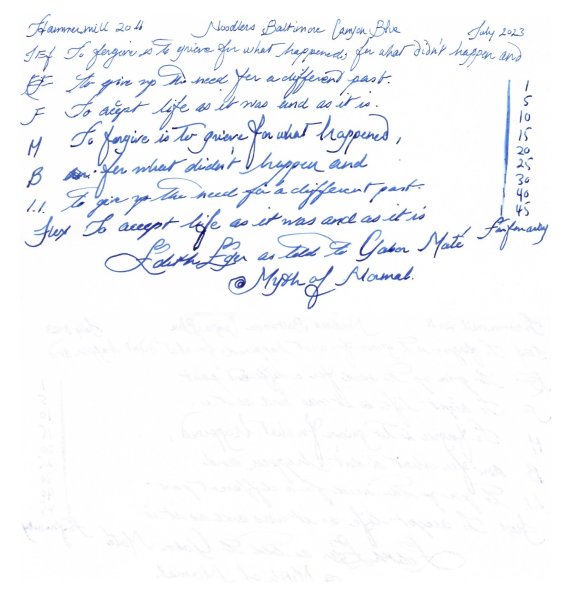 Hammermill 20 lb Noodlers Baltimore Canyon Blue July 2023
To forgive is to grieve for what happened, for what didn't happen and
EF To give up the need for a different past.
F To accept life as it was and as it is.
M To forgive is to grieve for what happened,
B for what didn't happen and
1.1. to give up the need for a different past.
flex To accept life as it was and as it is
Edith Eger as told to Gabor Maté
Myth of Normal.
1
5
10
15
20
25
30
40
45